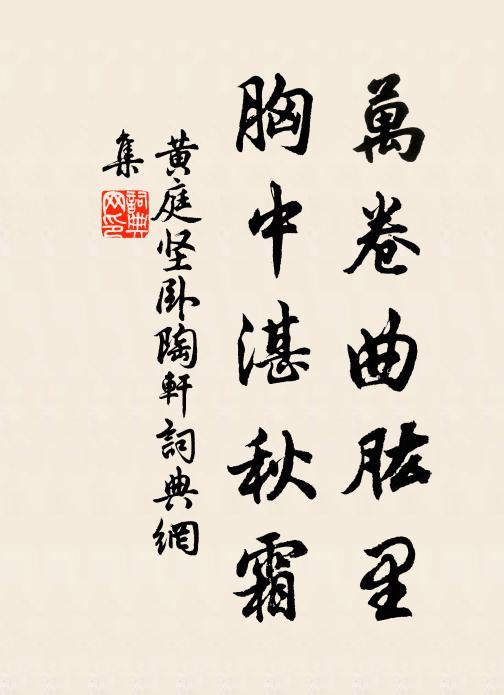 萬卷曲肱里
胸中湛秋霜
黄庭坚卧陶軒詞典網
集
詞典網印